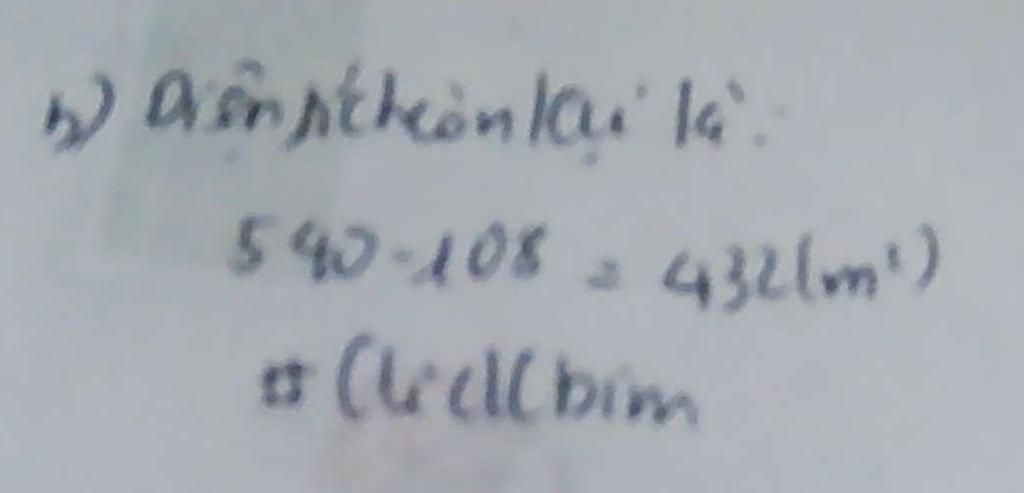 b) Diện tích còn lại là:
540 - 108 = 432 (m²)
¤ CliclCbim